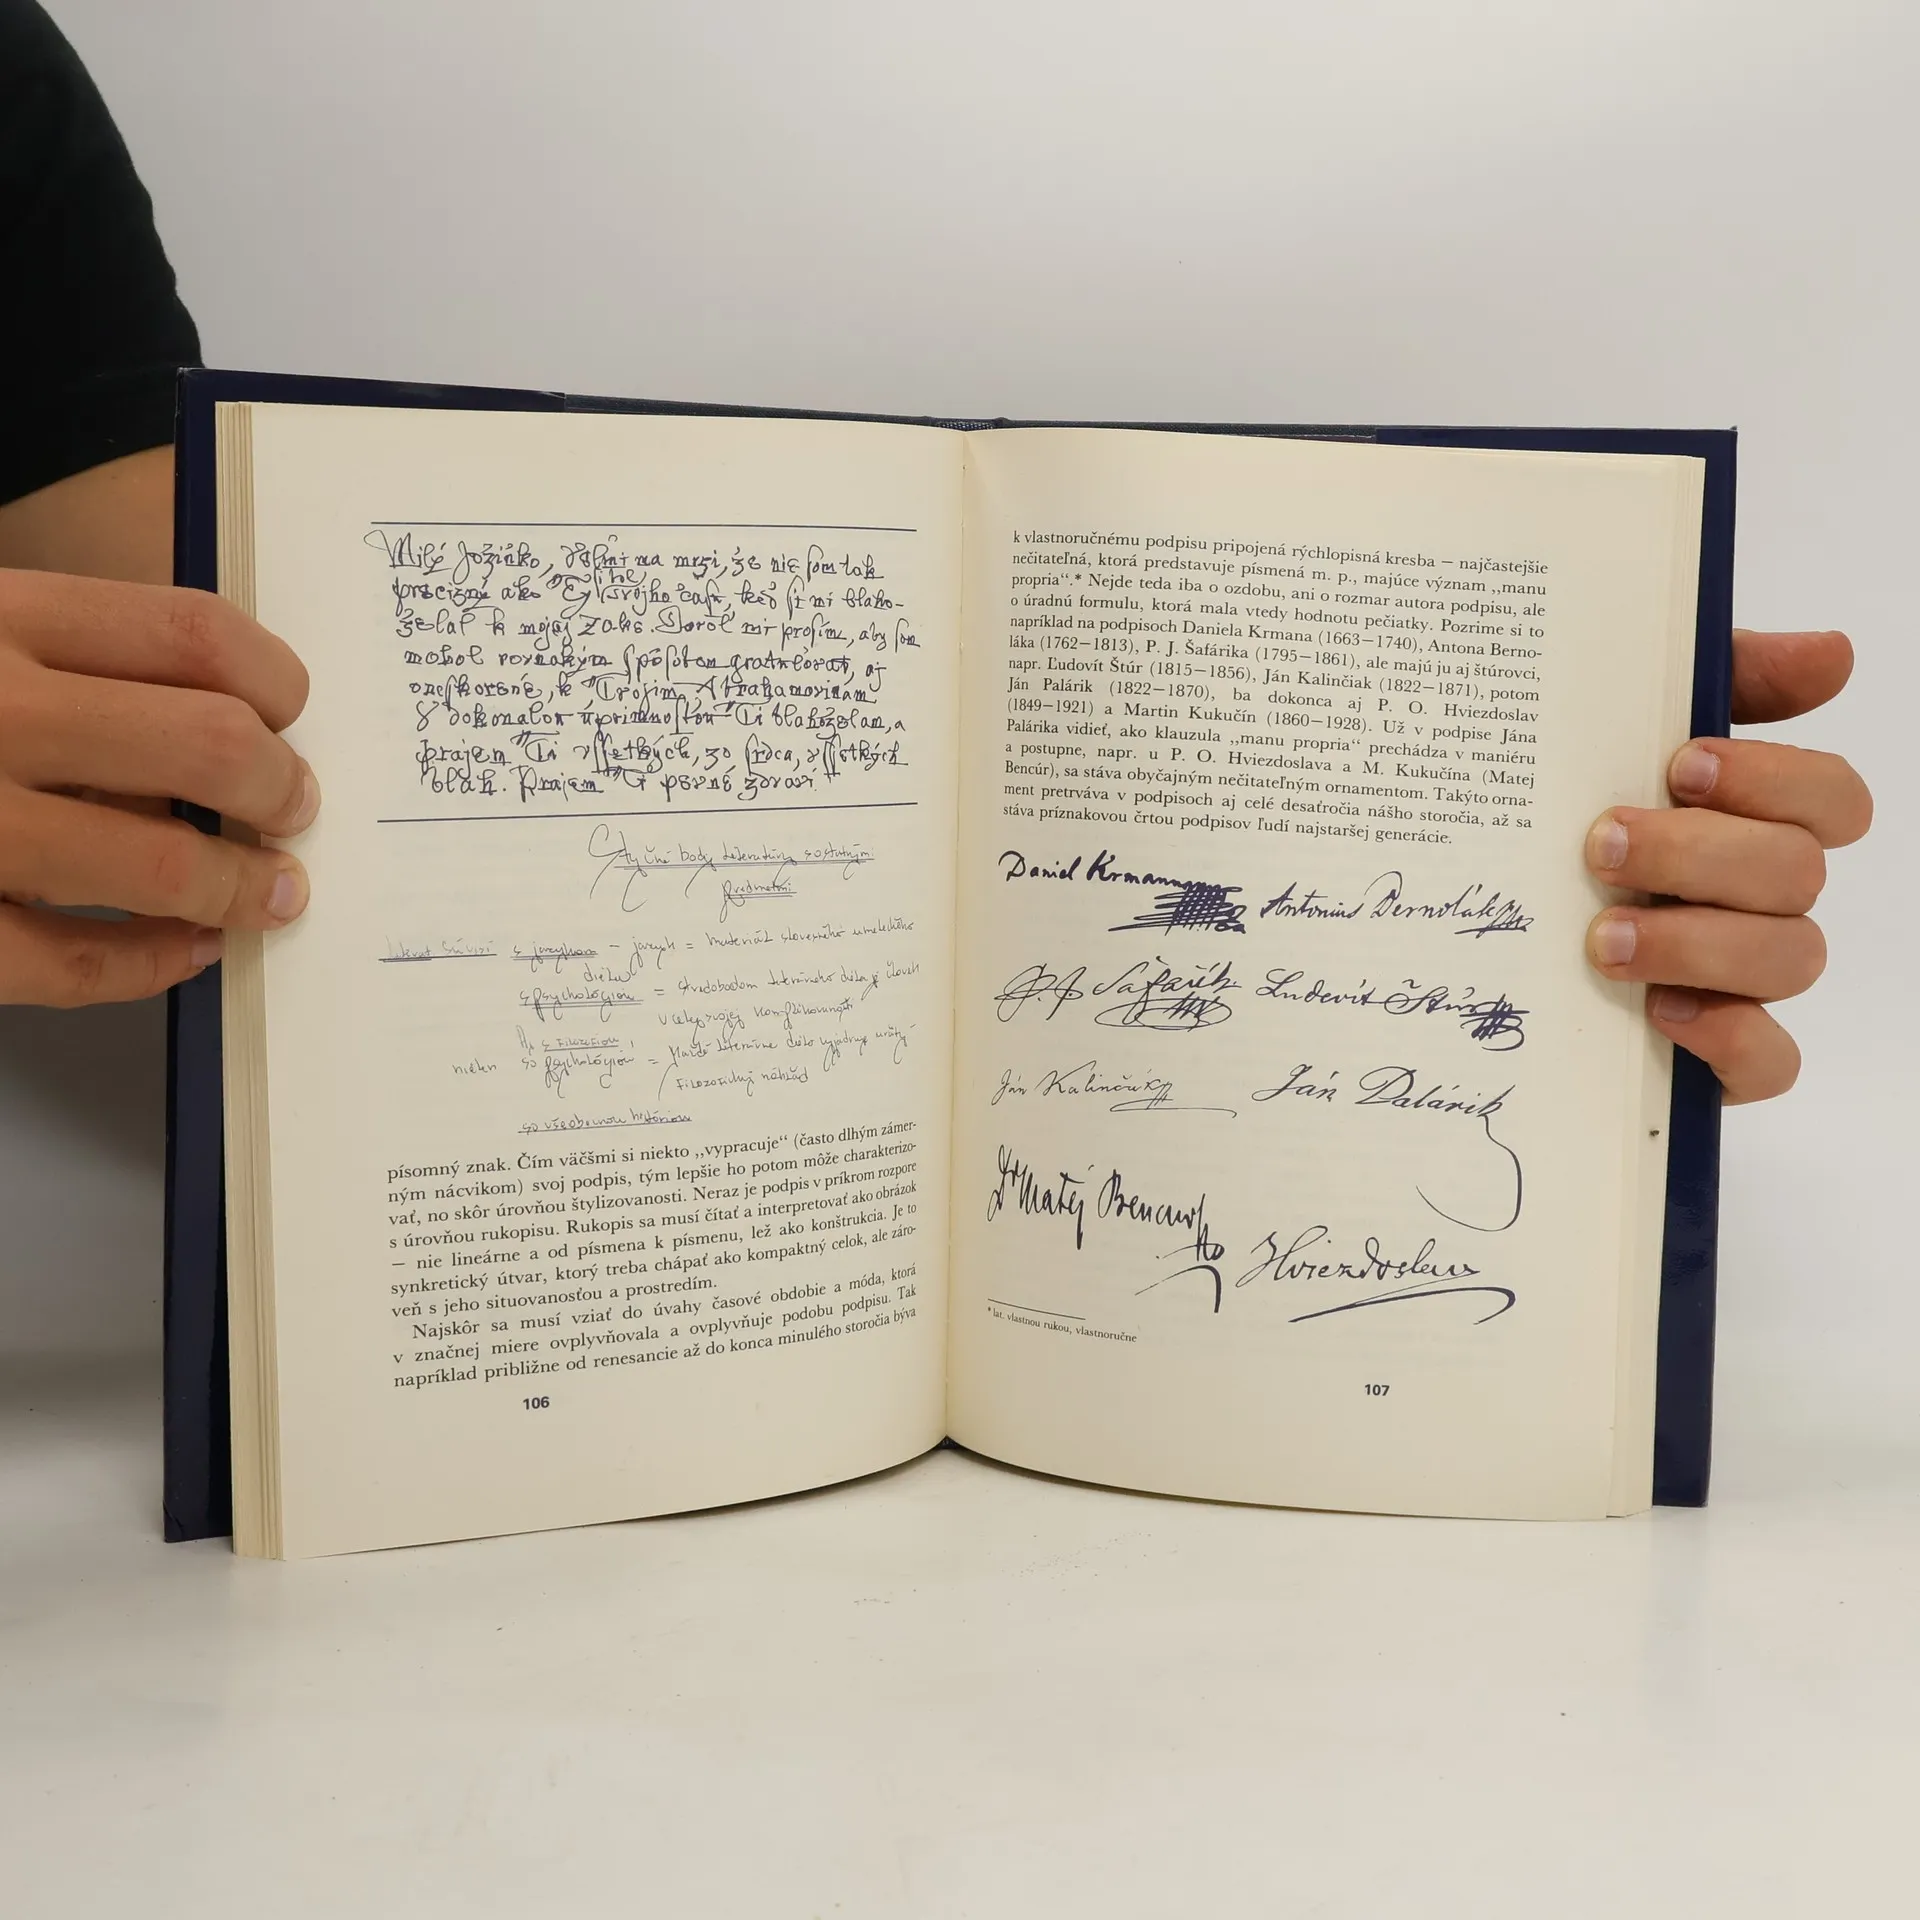 Milý Jožinko, veľmi ma mrzí, že nie som tak
precízny ako Ty, svojho času, keď si mi blaho-
želal k mojej 70-ke. Dovoľ mi prosím, aby som
mohol rovnakým spôsobom gratulovať, aj
oneskorené, k Tvojim Abrahamovinám
V dokonalou úprimnosťou Ti blahoželam, a
prajem Ti všetkých, zo srdca, všetkých
blah. Prajem Ti pevné zdraví!
Styčné body literatúry s ostatnými
predmetmi
súvisí s jazykom – jazyk = materiál slovesného umeleckého
diela
s psychológiou = stredobodom literárneho diela je človek
v celej svojej komplikovanosti
s filozofiou
nielen so psychológiou = Každé literárne dielo vyjadruje určitý
filozofický náhľad
so všeobecnou históriou
písomný znak. Čím väčšmi si niekto ,,vypracuje“ (často dlhým zámer-
ným nácvikom) svoj podpis, tým lepšie ho potom môže charakterizo-
vať, no skôr úrovňou štylizovanosti. Neraz je podpis v príkrom rozpore
s úrovňou rukopisu. Rukopis sa musí čítať a interpretovať ako obrázok
— nie lineárne a od písmena k písmenu, lež ako konštrukcia. Je to
synkretický útvar, ktorý treba chápať ako kompaktný celok, ale záro-
veň s jeho situovanosťou a prostredím.
Najskôr sa musí vziať do úvahy časové obdobie a móda, ktorá
v značnej miere ovplyvňovala a ovplyvňuje podobu podpisu. Tak
napríklad približne od renesancie až do konca minulého storočia býva
106
k vlastnoručnému podpisu pripojená rýchlopisná kresba – najčastejšie
nečitateľná, ktorá predstavuje písmená m. p., majúce význam ,,manu
propria“.* Nejde teda iba o ozdobu, ani o rozmar autora podpisu, ale
o úradnú formulu, ktorá mala vtedy hodnotu pečiatky. Pozrime si to
napríklad na podpisoch Daniela Krmana (1663–1740), Antona Berno-
láka (1762–1813), P. J. Šafárika (1795–1861), ale majú ju aj štúrovci,
napr. Ľudovít Štúr (1815–1856), Ján Kalinčiak (1822–1871), potom
Ján Palárik (1822–1870), ba dokonca aj P. O. Hviezdoslav
(1849–1921) a Martin Kukučín (1860–1928). Už v podpise Jána
Palárika vidieť, ako klauzula ,,manu propria“ prechádza v maniéru
a postupne, napr. u P. O. Hviezdoslava a M. Kukučína (Matej
Bencúr), sa stáva obyčajným nečitateľným ornamentom. Takýto orna-
ment pretrváva v podpisoch aj celé desaťročia nášho storočia, až sa
stáva príznakovou črtou podpisov ľudí najstaršej generácie.
Daniel Krmann
Antonius Bernolák
P. J. Šafařík
Ludevít Štúr
Ján Kalinčák
Ján Palárik
Dr Matěj Bencur
Hviezdoslav
* lat. vlastnou rukou, vlastnoručne
107